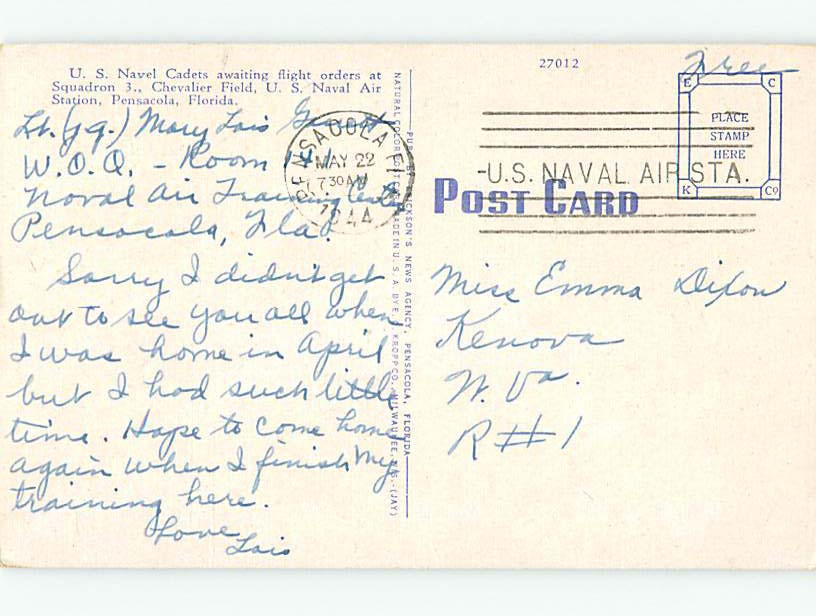 U. S. Navel Cadets awaiting flight orders at
Squadron 3., Chevalier Field, U. S. Naval Air
Station, Pensacola, Florida.
Lt. (jg.) Mary Lois
W.O.Q. - Room
Naval Air Training Center
Pensacola, Fla.
Sorry I didn't get
out to see you all when
I was home in April
but I had such little
time. Hope to come home
again when I finish my
training here.
Love
Lois
PENSACOLA
MAY 22
7 30 AM
1944
NATURAL COLOR POST CARD MADE IN U. S. A. BY E. C. KROPP CO., MILWAUKEE, WIS. (JAY)
PUB. BY DICKSON'S NEWS AGENCY, PENSACOLA, FLORIDA
27012
Free
E C
PLACE
STAMP
HERE
K Co
-U.S. NAVAL AIR STA.
POST CARD
Miss Emma Dixon
Kenova
W. Va.
R#1